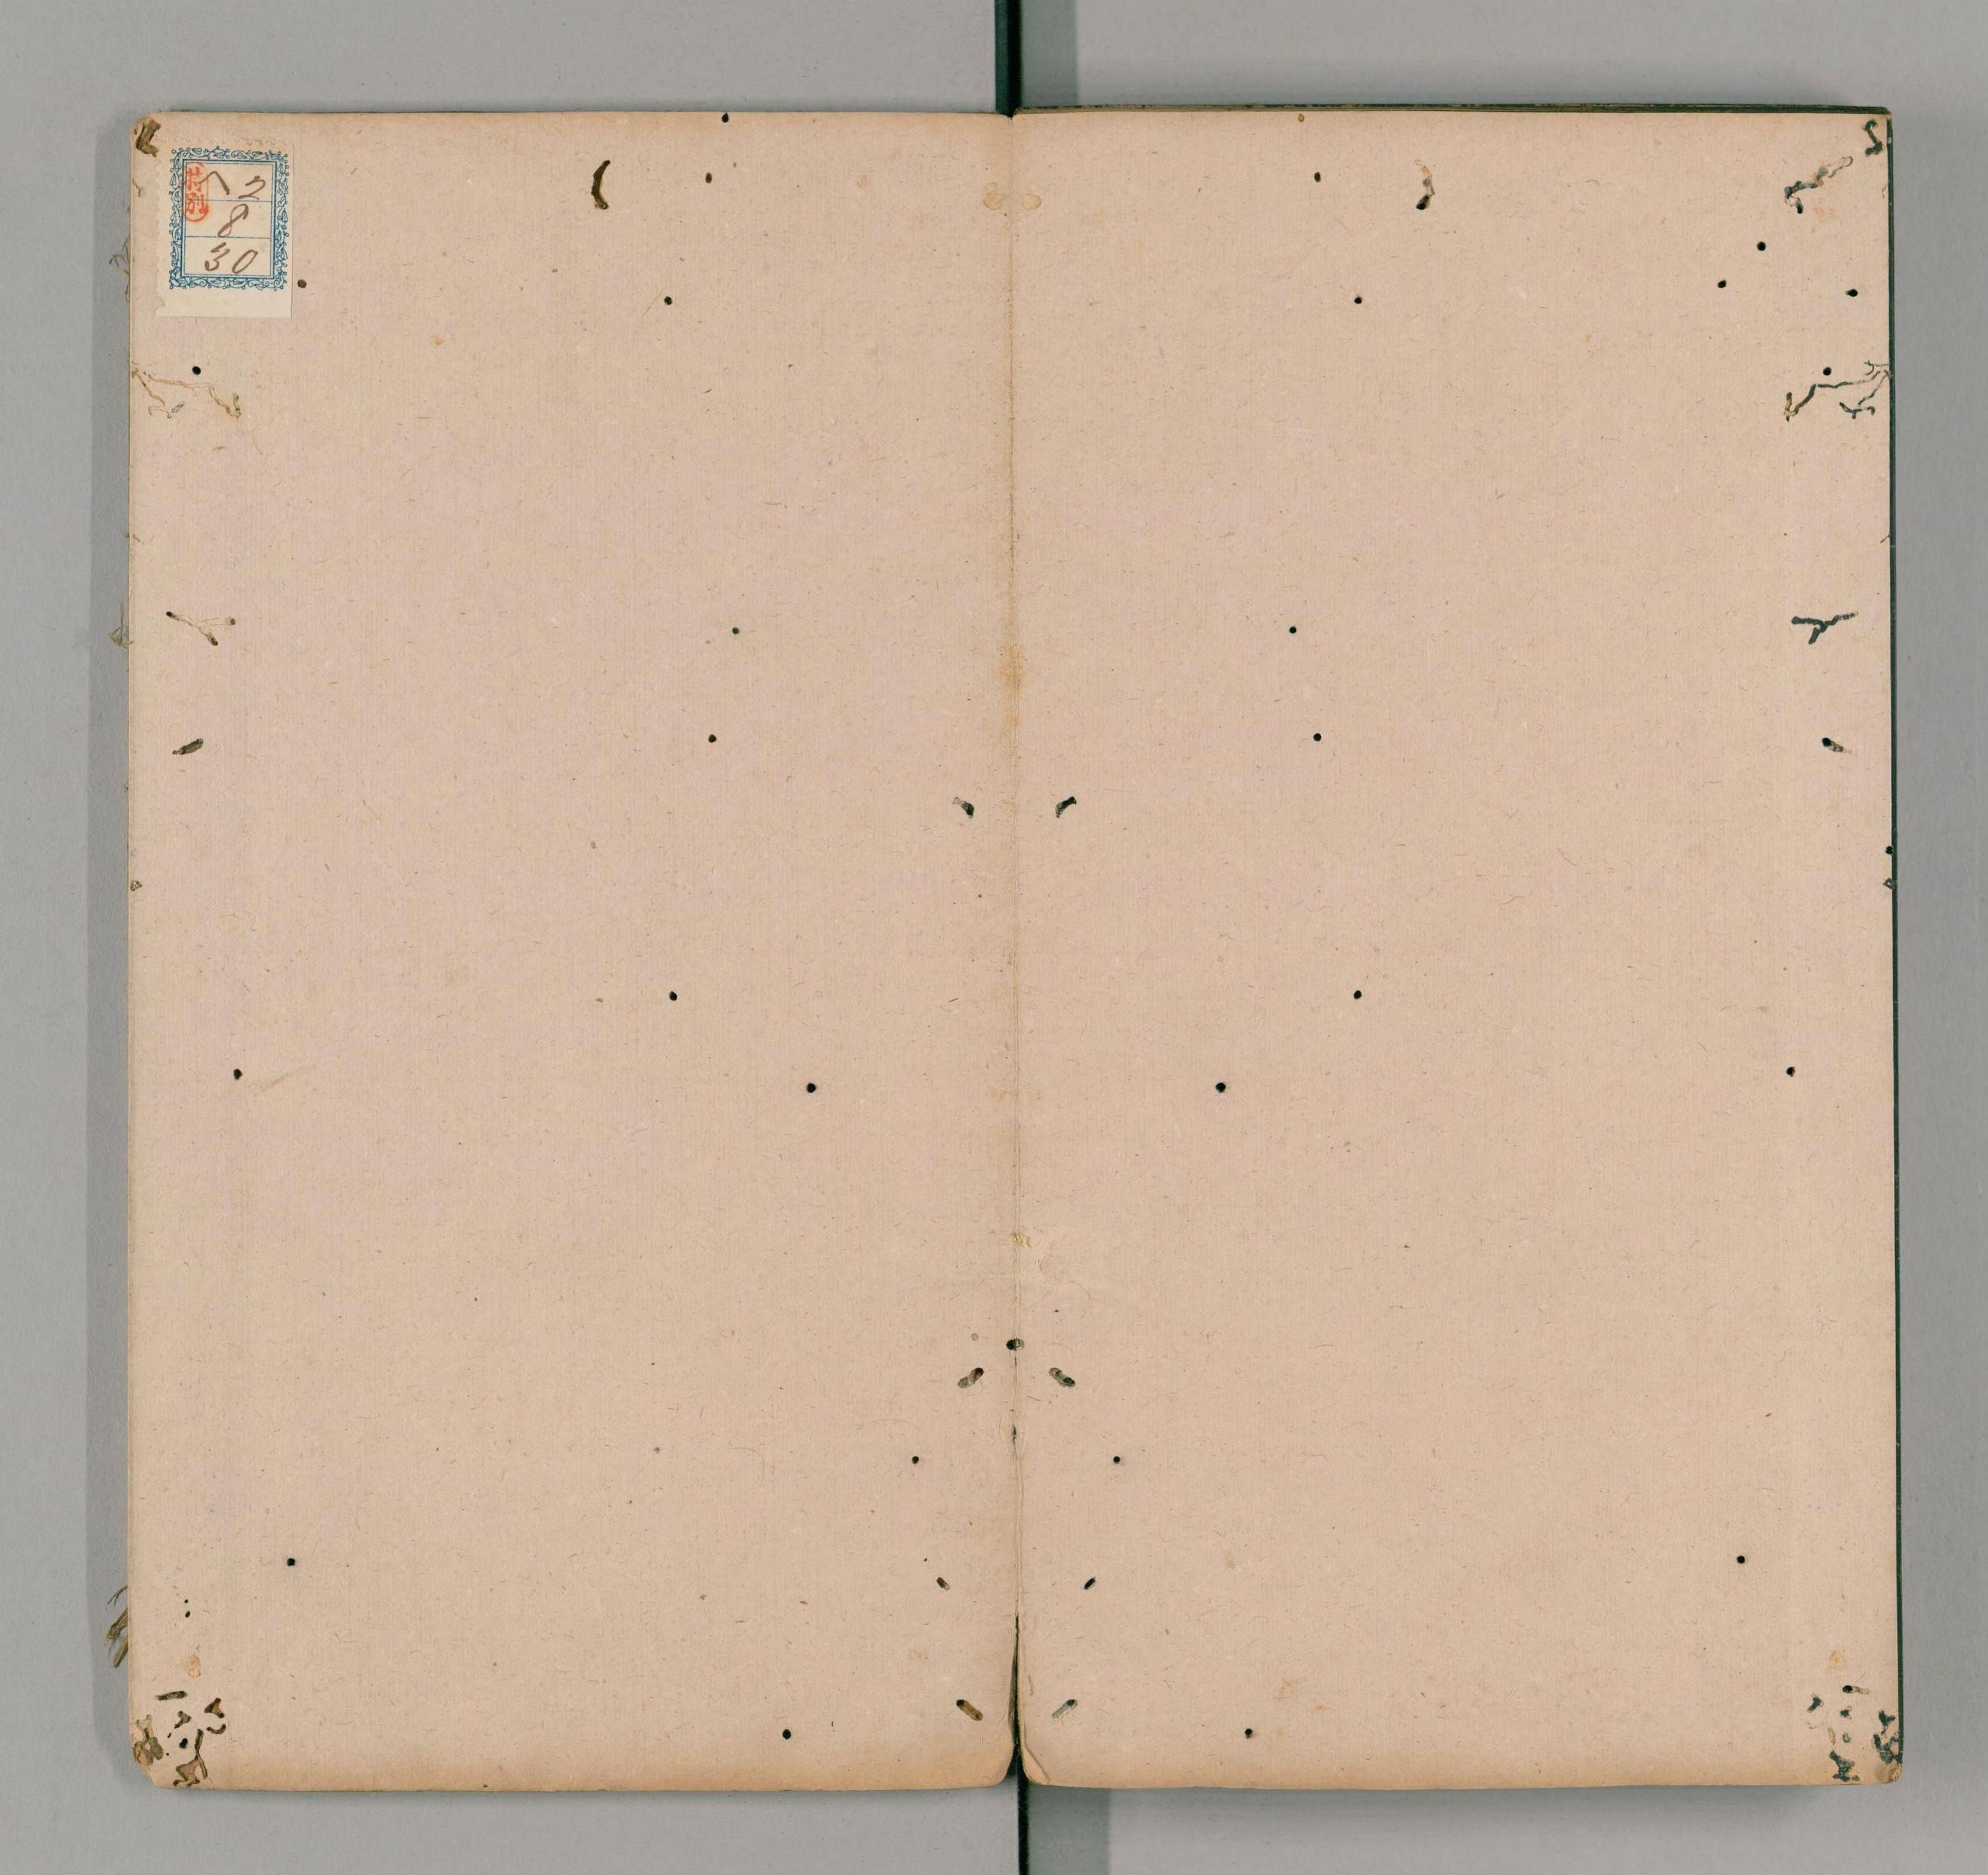 特別
ヘ2
8
30